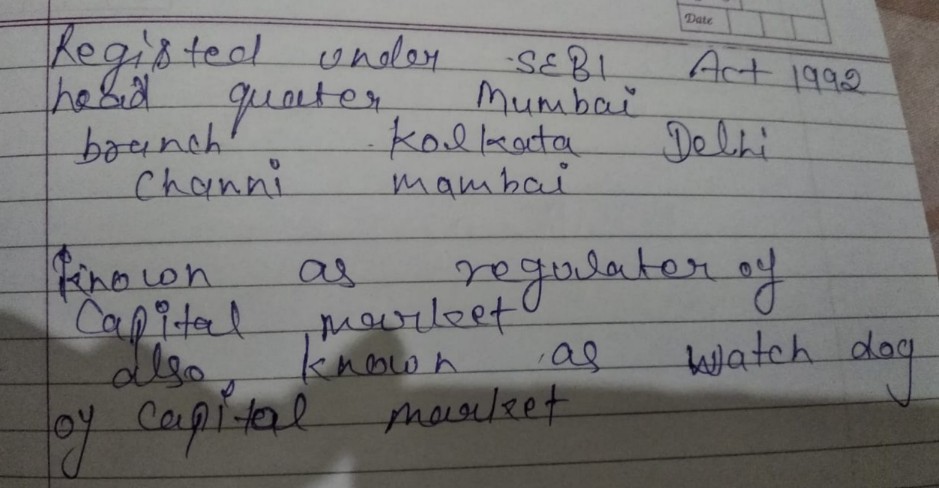 Date
Registed under SEBI Act 1992
head quater Mumbai
branch Kolkata Delhi
Channi Mambai
Known as regulator of
Capital market
also, known as watch dog
of capital market